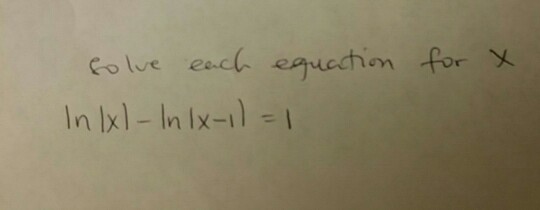 solve each equation for x
ln|x| - ln|x-1| = 1